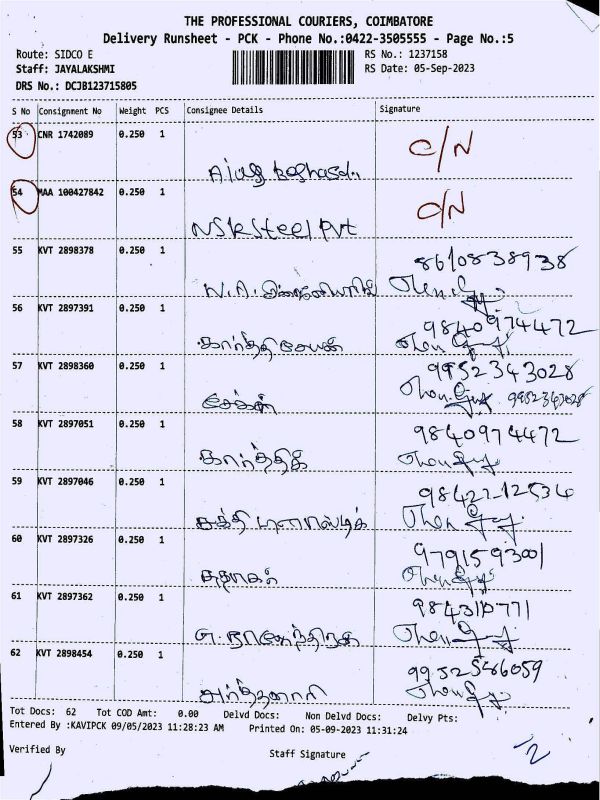 THE PROFESSIONAL COURIERS, COIMBATORE
Delivery Runsheet - PCK - Phone No.:0422-3505555 - Page No.:5
Route: SIDCO E RS No.: 1237158
Staff: JAYALAKSHMI RS Date: 05-Sep-2023
DRS No.: DCJB123715805
S No Consignment No Weight PCS Consignee Details Signature
53 CNR 1742089 0.250 1 C/N
54 MAA 100427842 0.250 1 C/N
NSK Steel Pvt
55 KVT 2898378 0.250 1 8610838938
56 KVT 2897391 0.250 1 9840974472
கார்த்திகேயன்
57 KVT 2898360 0.250 1 9952343028
சேகர் 9952343028
58 KVT 2897051 0.250 1 9840974472
கார்த்திக்
59 KVT 2897046 0.250 1
சக்தி பிளாஸ்டிக்
60 KVT 2897326 0.250 1 9791593001
61 KVT 2897362 0.250 1
62 KVT 2898454 0.250 1 9952586059
Tot Docs: 62 Tot COD Amt: 0.00 Delvd Docs: Non Delvd Docs: Delvy Pts:
Entered By :KAVIPCK 09/05/2023 11:28:23 AM Printed On: 05-09-2023 11:31:24
Verified By Staff Signature